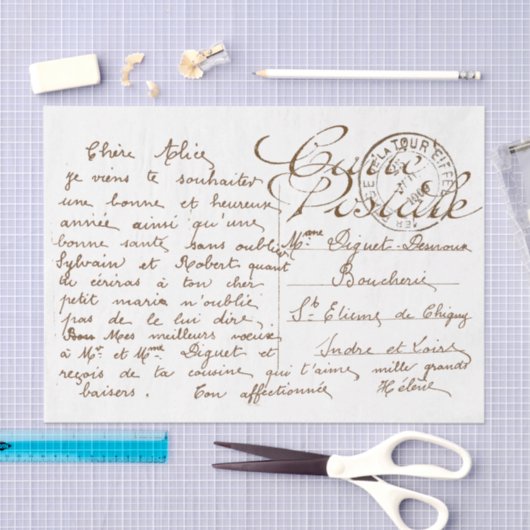 Chère Alice
je viens te souhaiter
une bonne et heureuse
année ainsi qu'une
bonne santé sans oublier
Sylvain et Robert quant
tu écriras à ton cher
petit marie n'oublié
pas de le lui dire.
Mes meilleurs vœux
à Mr et Mme Piguet et
reçois de ta cousine qui t'aime mille grands
baisers. Ton affectionnée Hélène
Carte
Postale
LA TOUR EIFFEL
Mme Piguet-Desnoux
Boucherie
St Etienne de Chigny
Indre et Loire